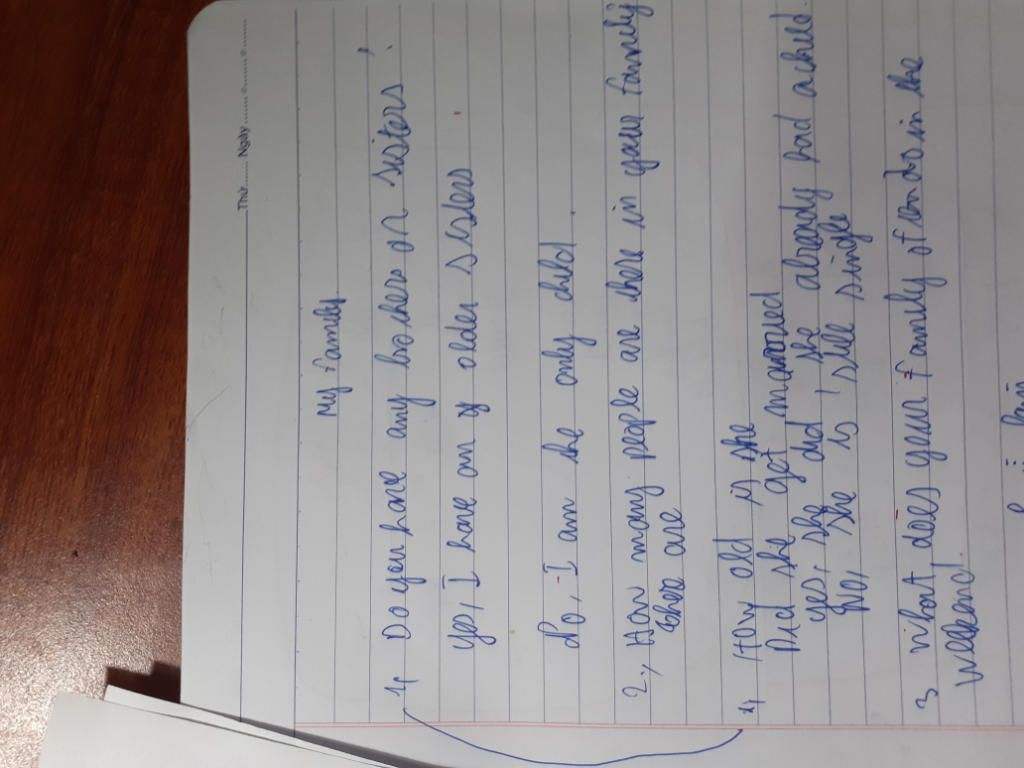 Thứ......... Ngày ......... / .........
My Family
1, Do you have any brothers or sisters,
Yes, I have an older sisters
No, I am the only child.
2, How many people are there in your family
there are
1, How old is she
Did she got
yes, she did she already and a child.
No, she is, still single
3 what does your family often do in the
weekend.